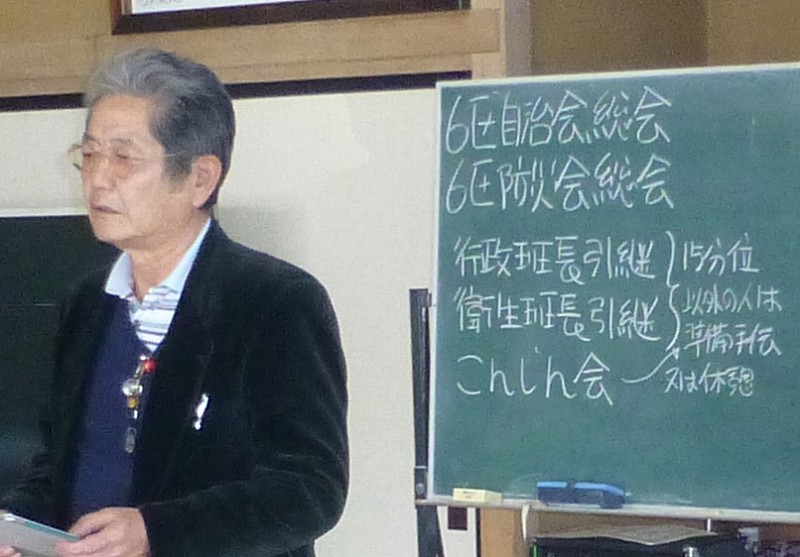 6区自治会総会
6区防災会総会
行政班長引継
衛生班長引継
15分位
以外の人は
準備手伝
又は休憩
こんじん会